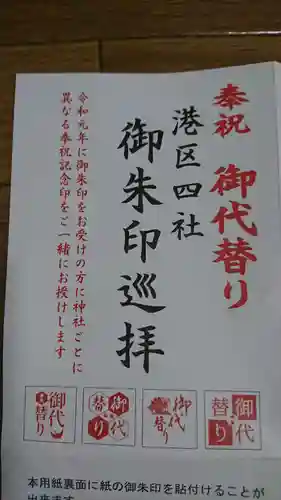 奉祝 御代替り
港区四社
御朱印巡拝
令和元年に御朱印をお受けの方に神社ごとに
異なる奉祝記念印をご一緒にお授けします
御代替り
御代替り
御代替り
御代替り
本用紙裏面に紙の御朱印を貼付けることが
出来ます